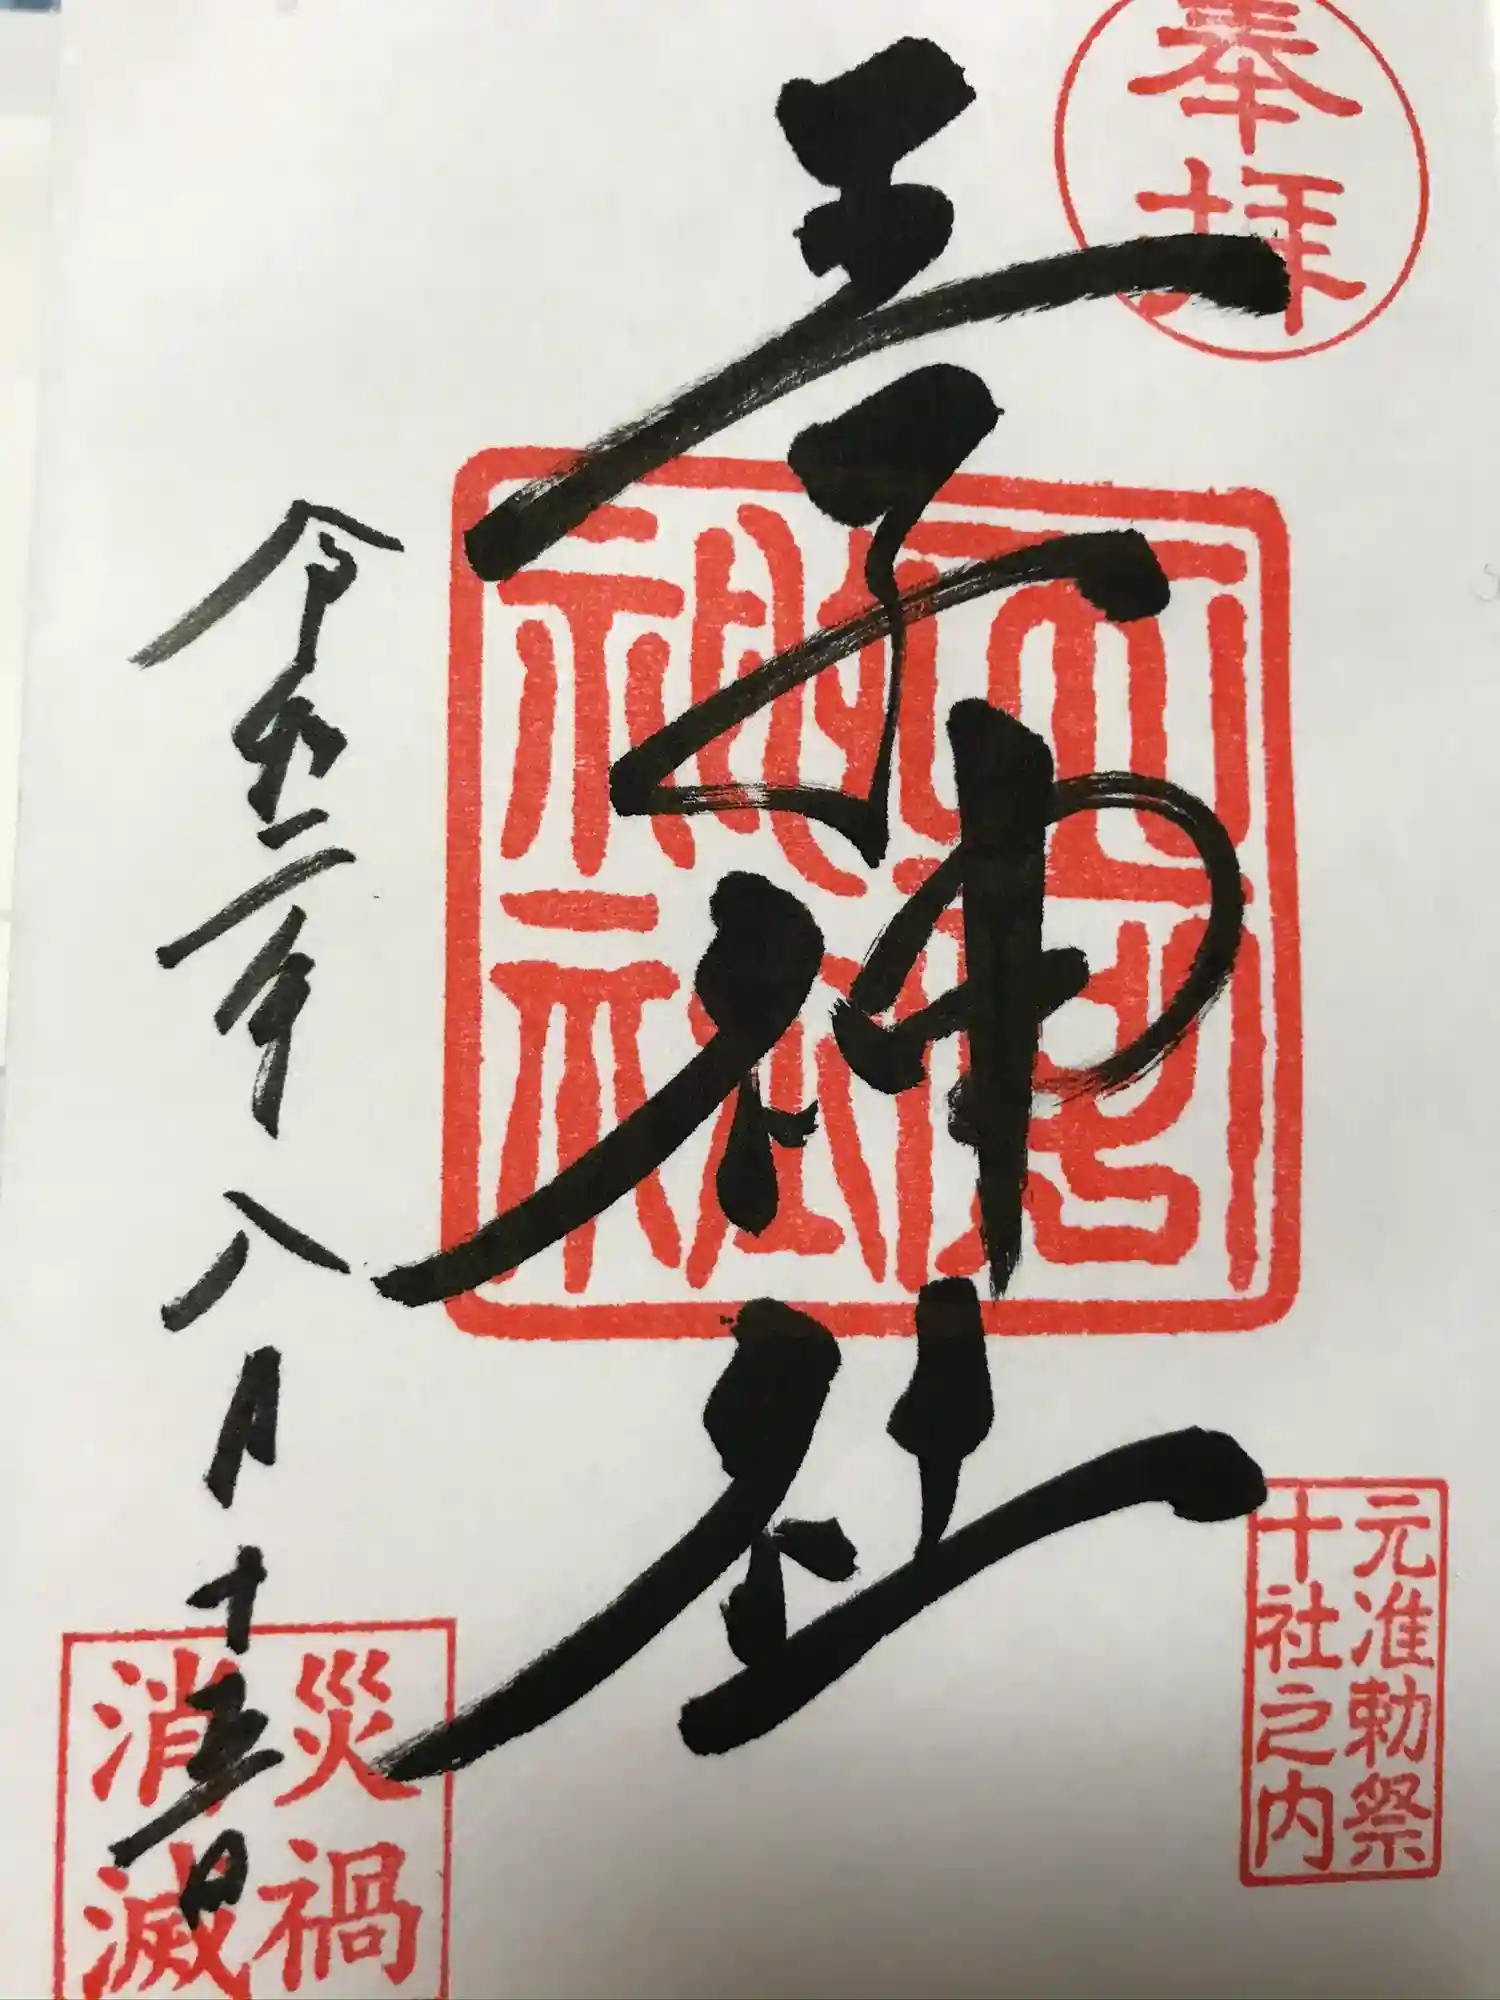 奉拝
元准勅祭
十社之内
王子神社
王子神社
令和二年八月十五日
災禍
消滅